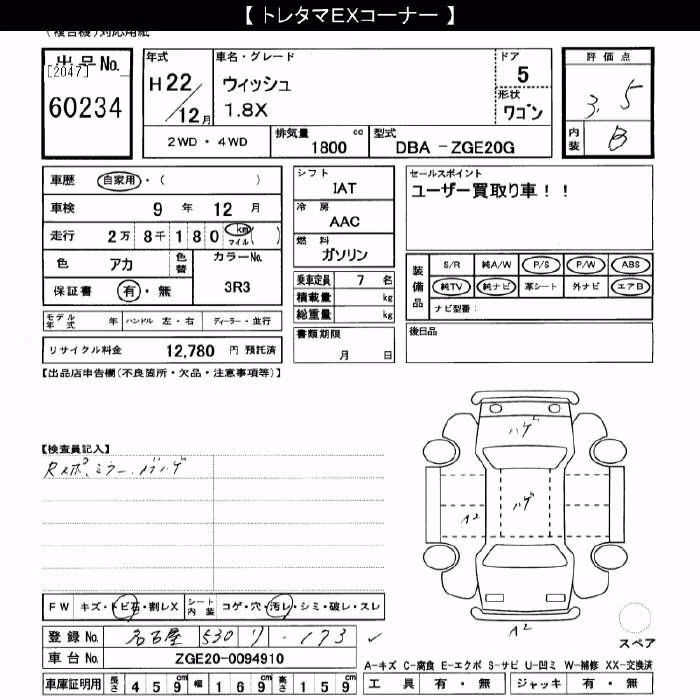 【 トレタマEXコーナー 】
(複合機)対応用紙
出品No.
[2047]
60234
年式
H 22 / 12 月
車名・グレード
ウィッシュ
1.8X
ドア
5
形状
ワゴン
評価点
3.5
内装
B
2WD・4WD
排気量
1800 cc
型式
DBA -ZGE20G
車歴 自家用・( )
車検 9 年 12 月
走行 2万 8千 1 8 0 km マイル ( )
色 アカ
色替
カラーNo.
3R3
保証書 有・無
モデル年式 年
ハンドル 左・右
ディーラー・並行
リサイクル料金 12,780 円 預託済
シフト
IAT
冷房
AAC
燃料
ガソリン
乗車定員 7 名
積載量 kg
総重量 kg
書類期限
月 日
セールスポイント
ユーザー買取り車！！
装備品
S/R 純A/W P/S P/W ABS
純TV 純ナビ 革シート 外ナビ エアB
ナビ型番:
後日品
【出品店申告欄(不良箇所・欠品・注意事項等)】
【検査員記入】
Rスポ、ミラー、ガハゲ
ハゲ
ハゲ
A2
A2
FW キズ・トビ石・割レX
シート内装 コゲ・穴・汚レ・シミ・破レ・スレ
登録No. 名古屋 530 リ - 173
車台No. ZGE20-0094910
車庫証明用 長さ 4 5 9 cm 幅 1 6 9 cm 高さ 1 5 9 cm
スペア
A-キズ C-腐食 E-エクボ S-サビ U-凹ミ W-補修 XX-交換済
工具 有・無 ジャッキ 有・無